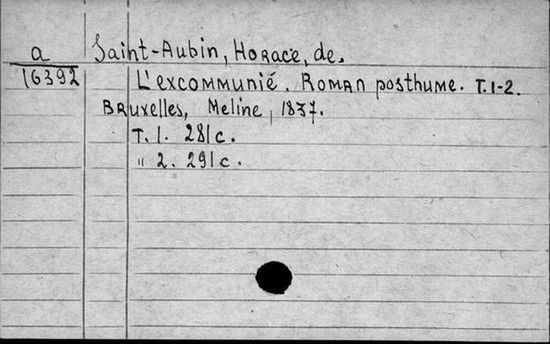 a Saint-Aubin, Horace, de.
16392 L'excommunié. Roman posthume. T.1-2.
Bruxelles, Meline, 1837.
T. 1. 281 c.
" 2. 291 c.